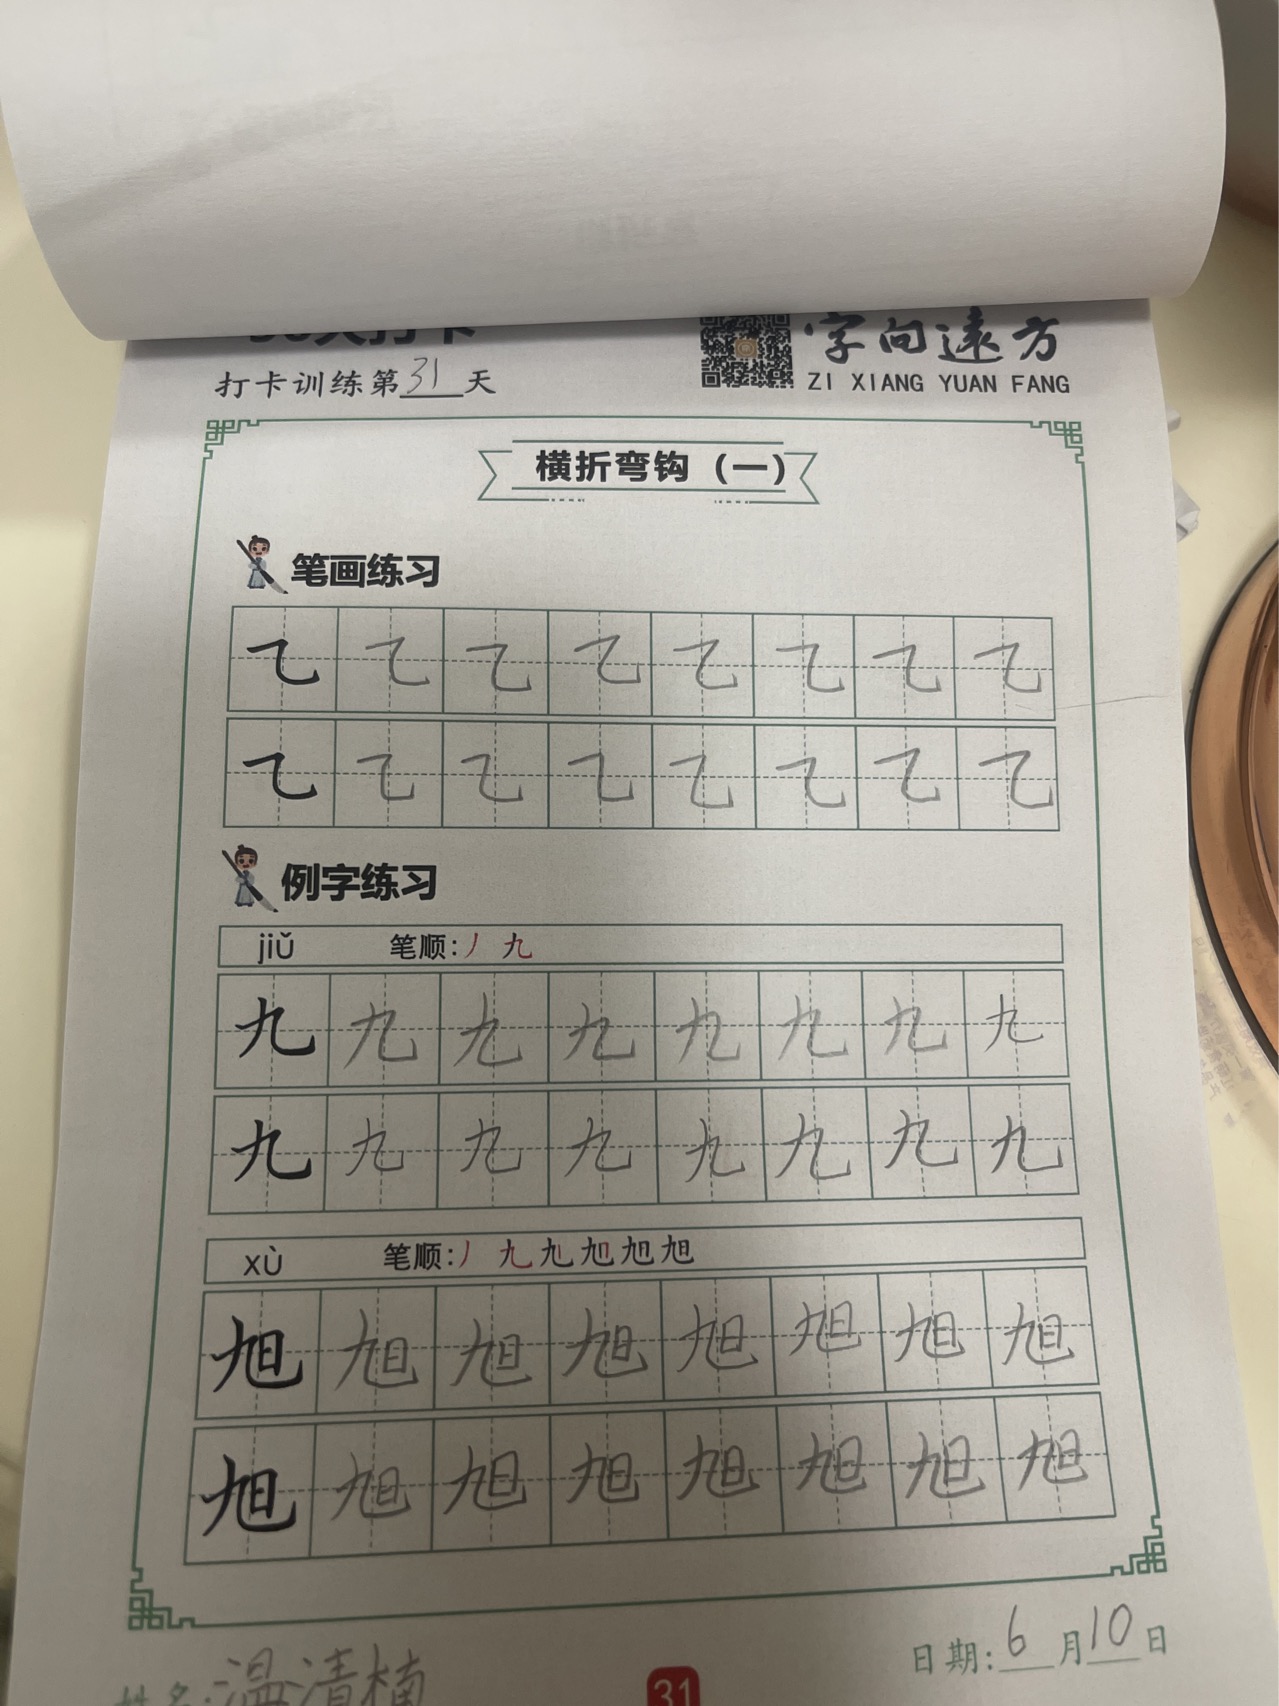 打卡训练第31天
字向远方
ZI XIANG YUAN FANG
横折弯钩（一）
笔画练习
乙 乙 乙 乙 乙 乙 乙 乙
乙 乙 乙 乙 乙 乙 乙 乙
例字练习
jiǔ 笔顺：丿 九
九 九 九 九 九 九 九 九
九 九 九 九 九 九 九 九
xù 笔顺：丿 九 旭 旭 旭 旭
旭 旭 旭 旭 旭 旭 旭 旭
旭 旭 旭 旭 旭 旭 旭 旭
姓名：温清楠
31
日期：6月10日